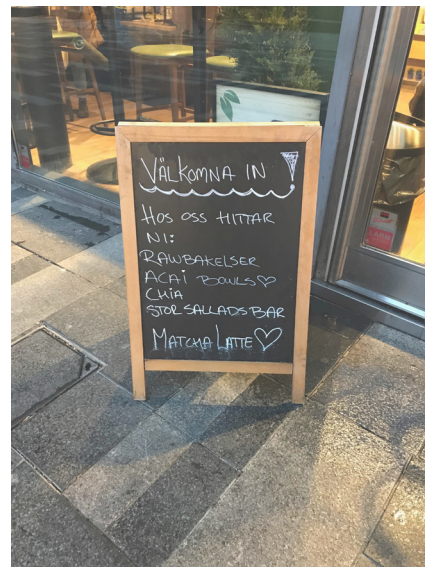 VÄLKOMNA IN!
HOS OSS HITTAR
NI:
RAWBAKELSER
ACAI BOWLS♡
CHIA
STOR SALLADSBAR
MATCHA LATTE♡
LARM